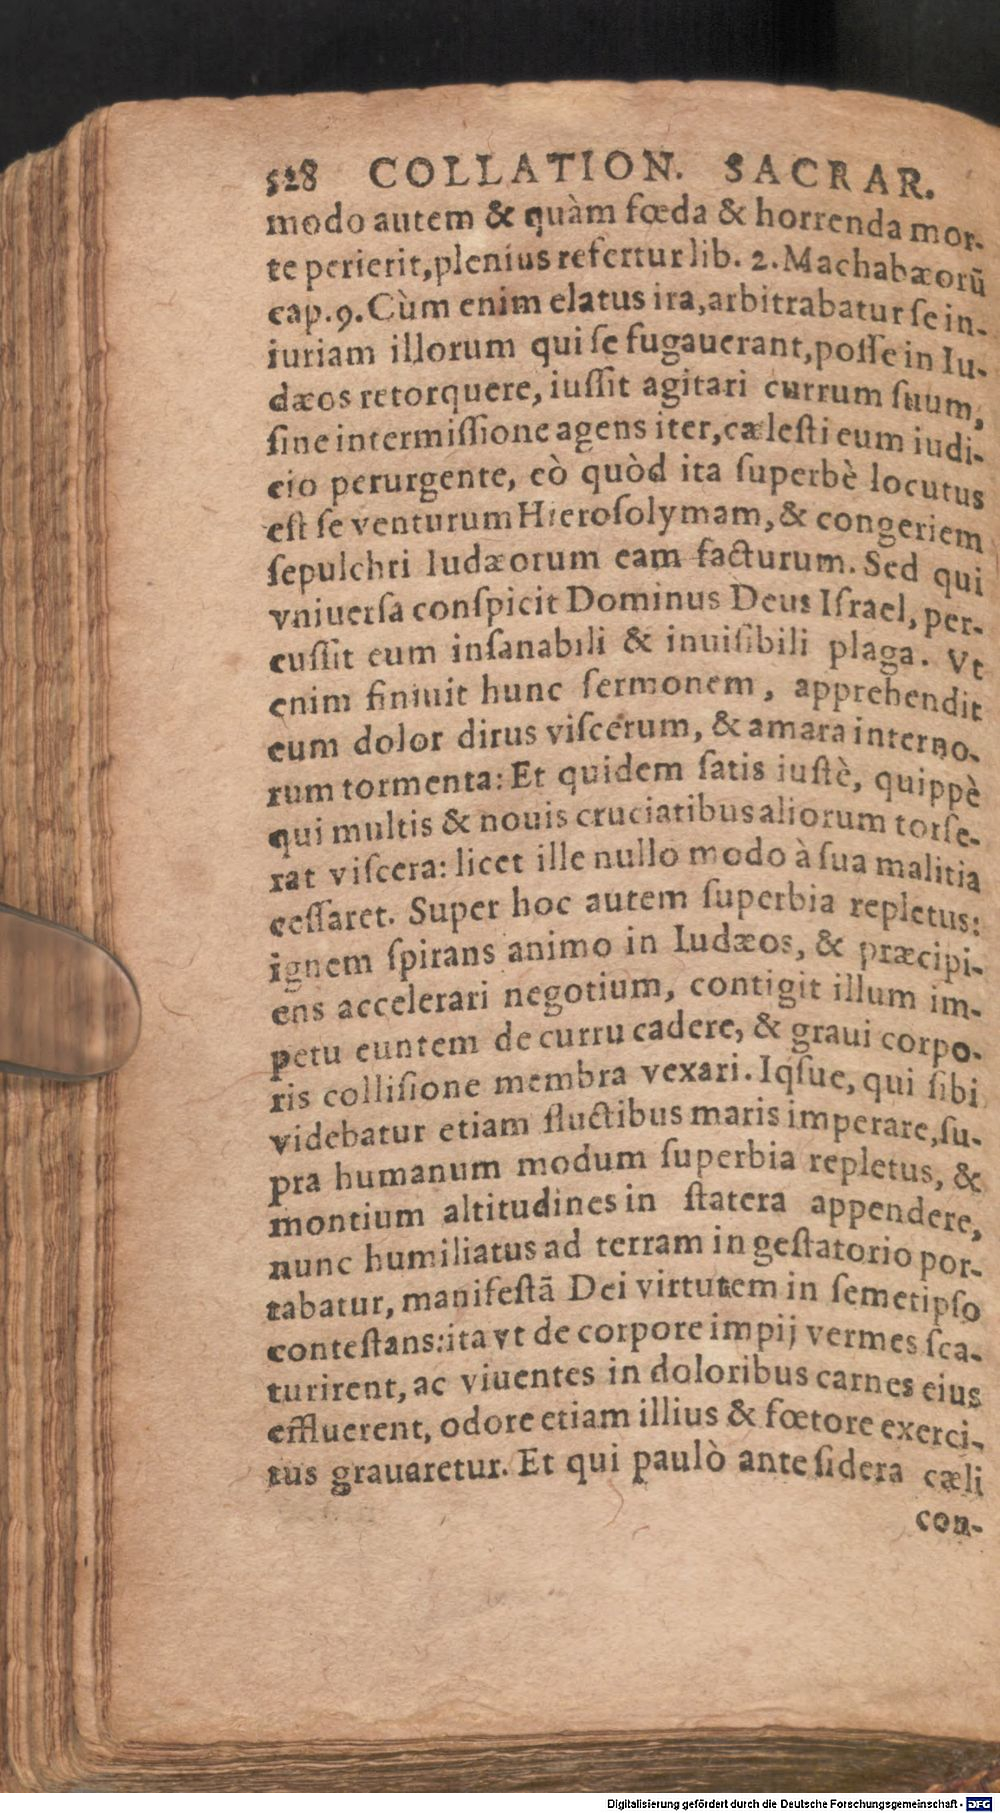 528 COLLATION. SACRAR.
modo autem & quàm fœda & horrenda mor-
te perierit, plenius refertur lib. 2. Machabæorũ
cap. 9. Cùm enim elatus ira, arbitrabatur ſe in-
iuriam illorum qui ſe fugauerant, poſſe in Iu-
dæos retorquere, iuſſit agitari currum ſuum,
ſine intermiſſione agens iter, cæleſti eum iudi-
cio perurgente, eò quòd ita ſuperbè locutus
eſt ſe venturum Hieroſolymam, & congeriem
ſepulchri Iudæorum eam facturum. Sed qui
vniuerſa conſpicit Dominus Deus Iſrael, per-
cuſſit eum inſanabili & inuiſibili plaga. Vt
enim finiuit hunc ſermonem, apprehendit
eum dolor dirus viſcerum, & amara interno-
rum tormenta: Et quidem ſatis iuſtè, quippè
qui multis & nouis cruciatibus aliorum torſe-
rat viſcera: licet ille nullo modo à ſua malitia
ceſſaret. Super hoc autem ſuperbia repletus:
ignem ſpirans animo in Iudæos, & præcipi-
ens accelerari negotium, contigit illum im-
petu euntem de curru cadere, & graui corpo-
ris colliſione membra vexari. Iqſue, qui ſibi
videbatur etiam fluctibus maris imperare, ſu-
pra humanum modum ſuperbia repletus, &
montium altitudines in ſtatera appendere,
nunc humiliatus ad terram in geſtatorio por-
tabatur, manifeſtã Dei virtutem in ſemetipſo
conteſtans: ita vt de corpore impij vermes ſca-
turirent, ac viuentes in doloribus carnes eius
effluerent, odore etiam illius & fœtore exerci-
tus grauaretur. Et qui paulò ante ſidera cæli
con-
Digitalisierung gefördert durch die Deutsche Forschungsgemeinschaft - DFG